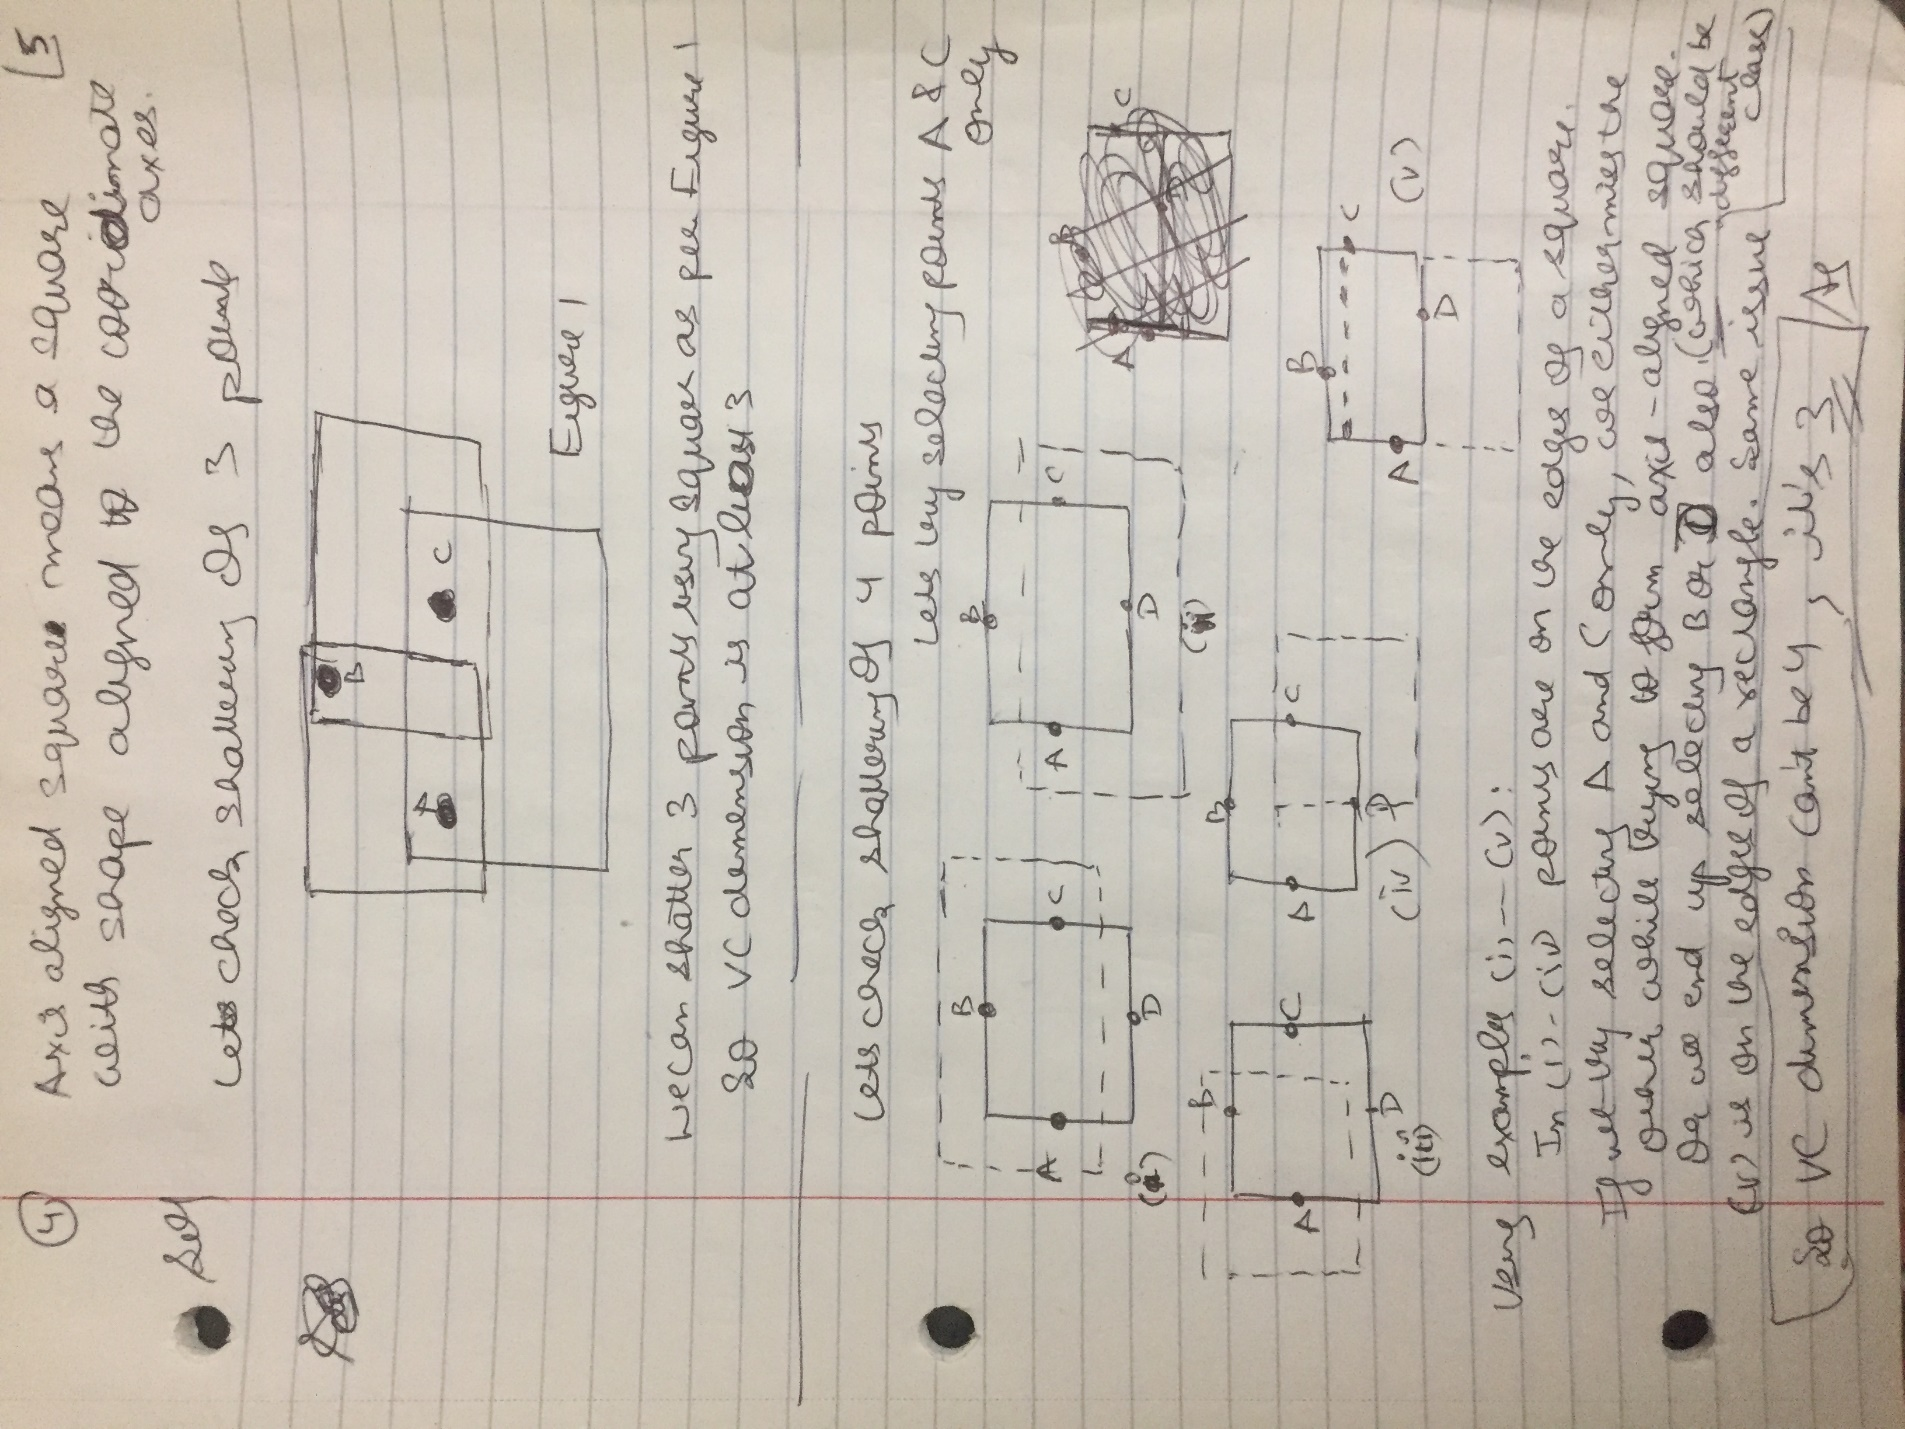 (4) Axis aligned square means a square [5
with shape aligned to the coordinate
axes.
Sol)
Lets check shattering of 3 points
B
A
C
Figure 1
We can shatter 3 points using square as per Figure 1
So VC dimension is at least 3
Lets check shattering of 4 points
Lets try selecting points A & C
only
B
A
C
D
(i)
B
A
C
D
(ii)
A
B
C
D
B
A
C
D
(iii)
B
A
C
D
(iv)
B
A
C
D
(v)
Using examples (i) -- (v):
In (i) - (iv) points are on the edges of a square.
If we try selecting A and C only, we either miss the
other while trying to form axis-aligned square.
Or we end up selecting B or D also (which should be
different
class)
(v) is on the edges of a rectangle. Same issue
So VC dimension can't be 4, it's 3